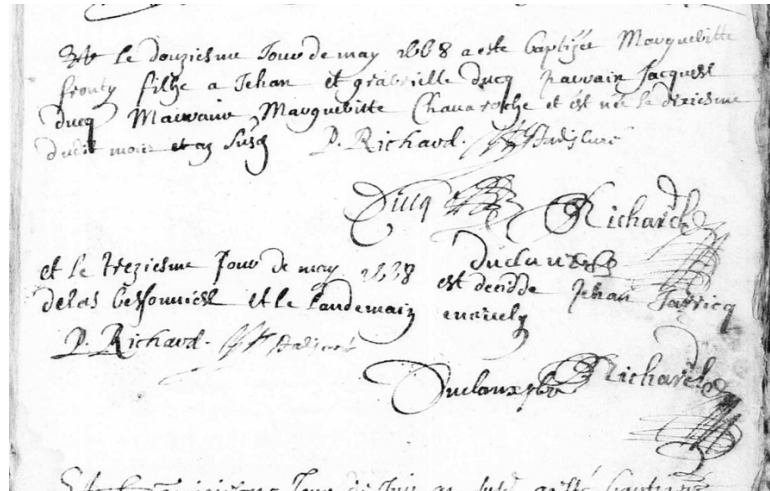 Et le douziesme Jour de may 1668 a este baptizée Marguebitte
fronty fillhe a Jehan et grabrielle ducq parrain Jacques
ducq Marraine Marguebitte Chavaroche et est née le dixiesme
dudit mois et an susd P. Richard.
Ducq Richard
duclaux
et le treziesme Jour de may 1668 est decidde Jehan Jarricq
delas bessonnies et le landemain ensevely
P. Richard.
Duclaux Richard
Jour de Juin an susd a esté baptizée